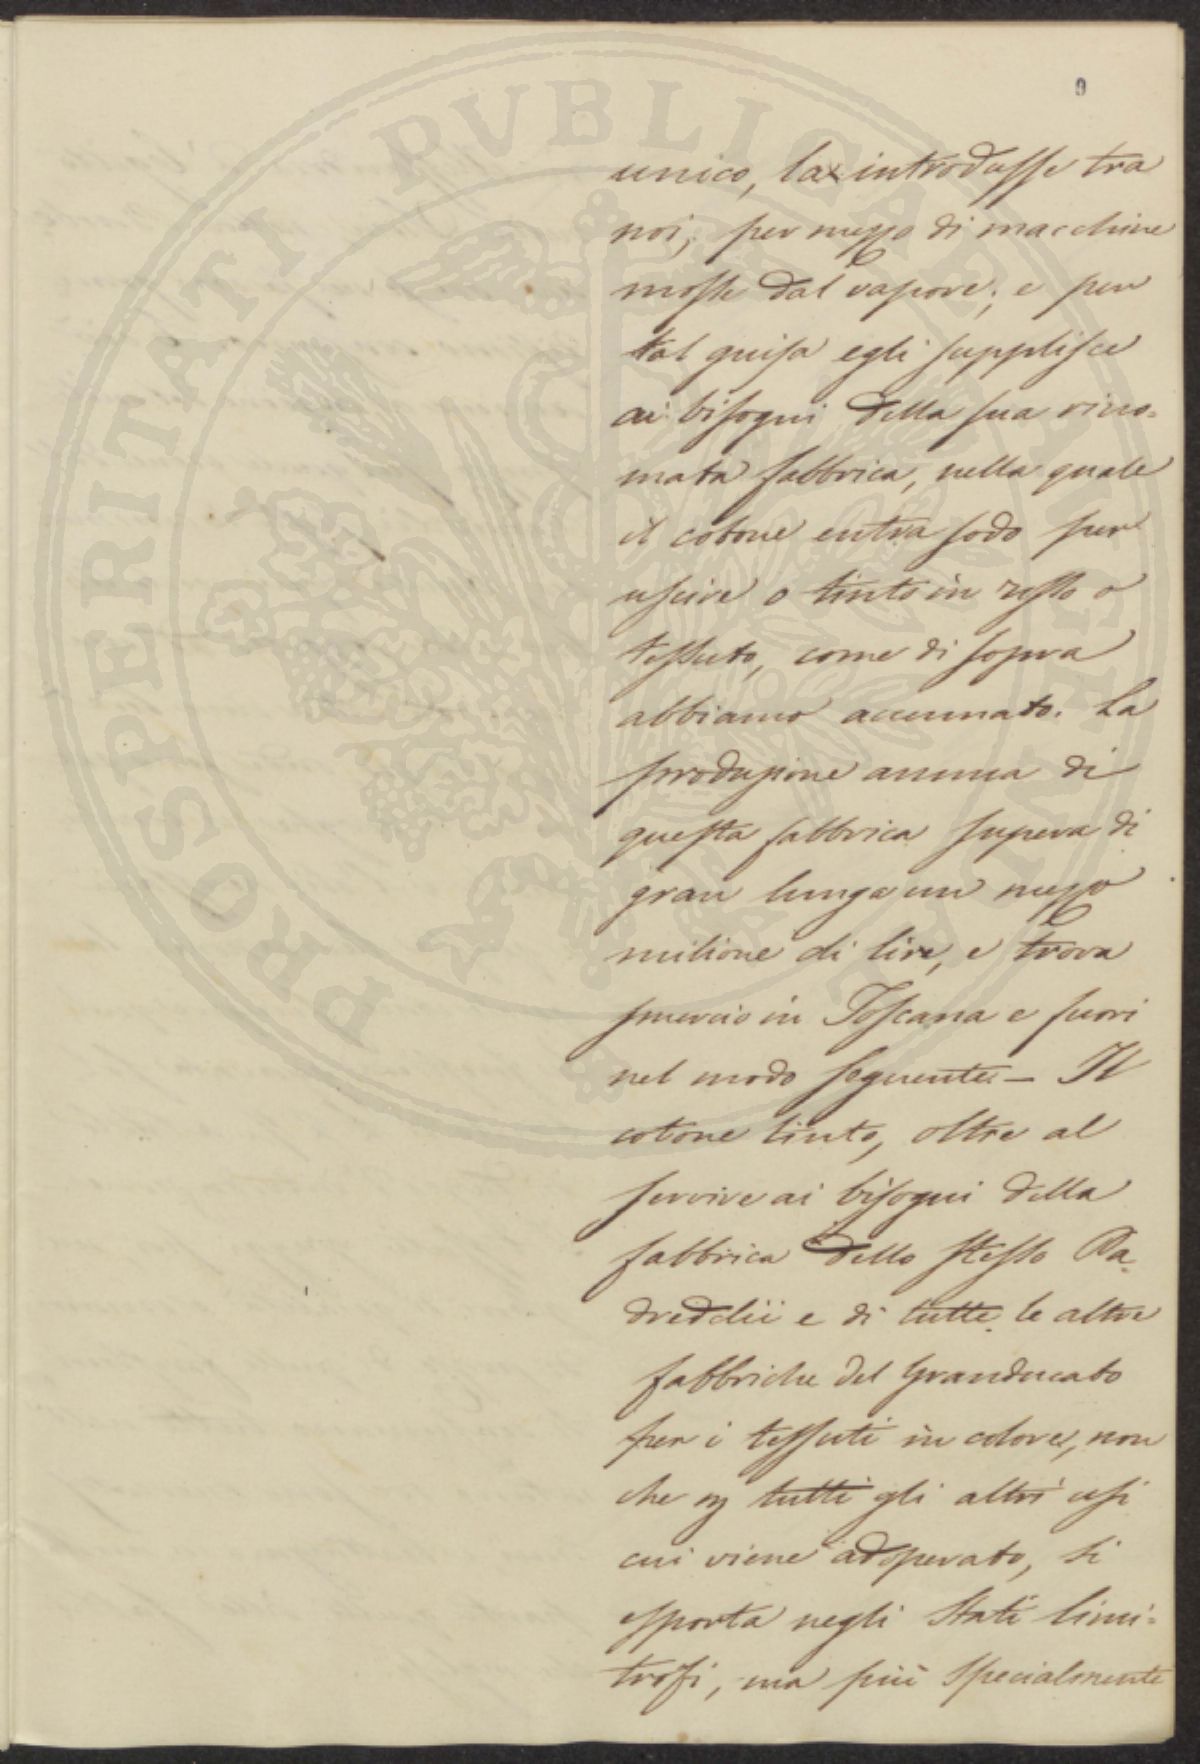 9
unico, la introdusse tra
noi, per mezzo di macchine
mosse dal vapore; e per
tal guisa egli supplisce
ai bisogni della sua rino=
mata fabbrica, nella quale
il cotone entra sodo per
uscire o tinto in rosso o
tessuto, come di sopra
abbiamo accennato. La
produzione annua di
questa fabbrica supera di
gran lunga un mezzo
milione di lire, e trova
smercio in Toscana e fuori
nel modo seguente — Il
cotone tinto, oltre al
servire ai bisogni della
fabbrica dello stesso Pa=
dreddii e di tutte le altre
fabbriche del Granducato
per i tessuti in colore, non
che tutti gli altri usi
cui viene adoperato, si
esporta negli Stati limi=
trofi, ma più specialmente
PROSPERITATI PVBLICAE